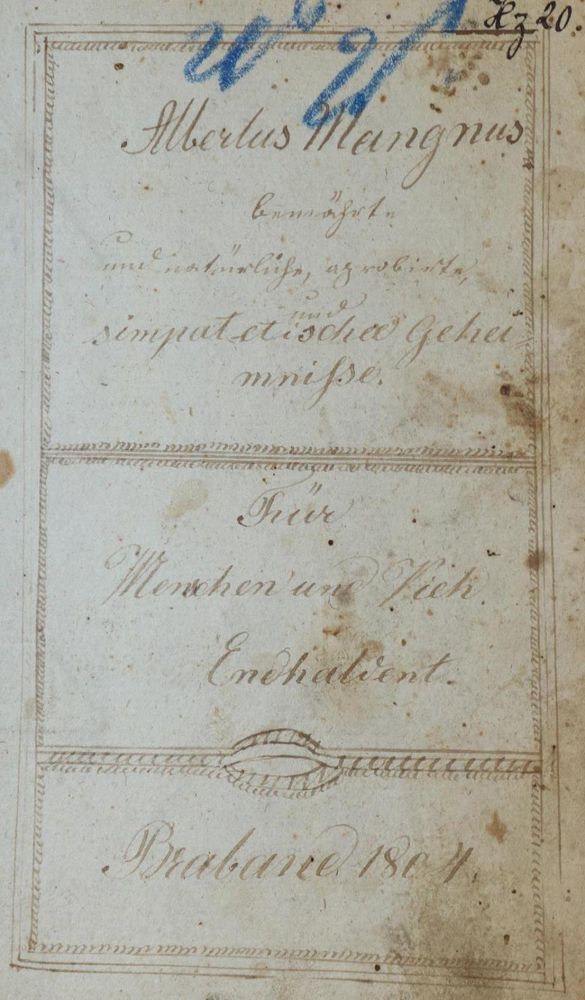 Hz 20.
Albertus Mangnus
bewährte
und natürliche, aprobirte,
und
simpatetische Gehei
mnisse.
Für
Menchen und Vieh
Endhaldent.
Braband 1804.